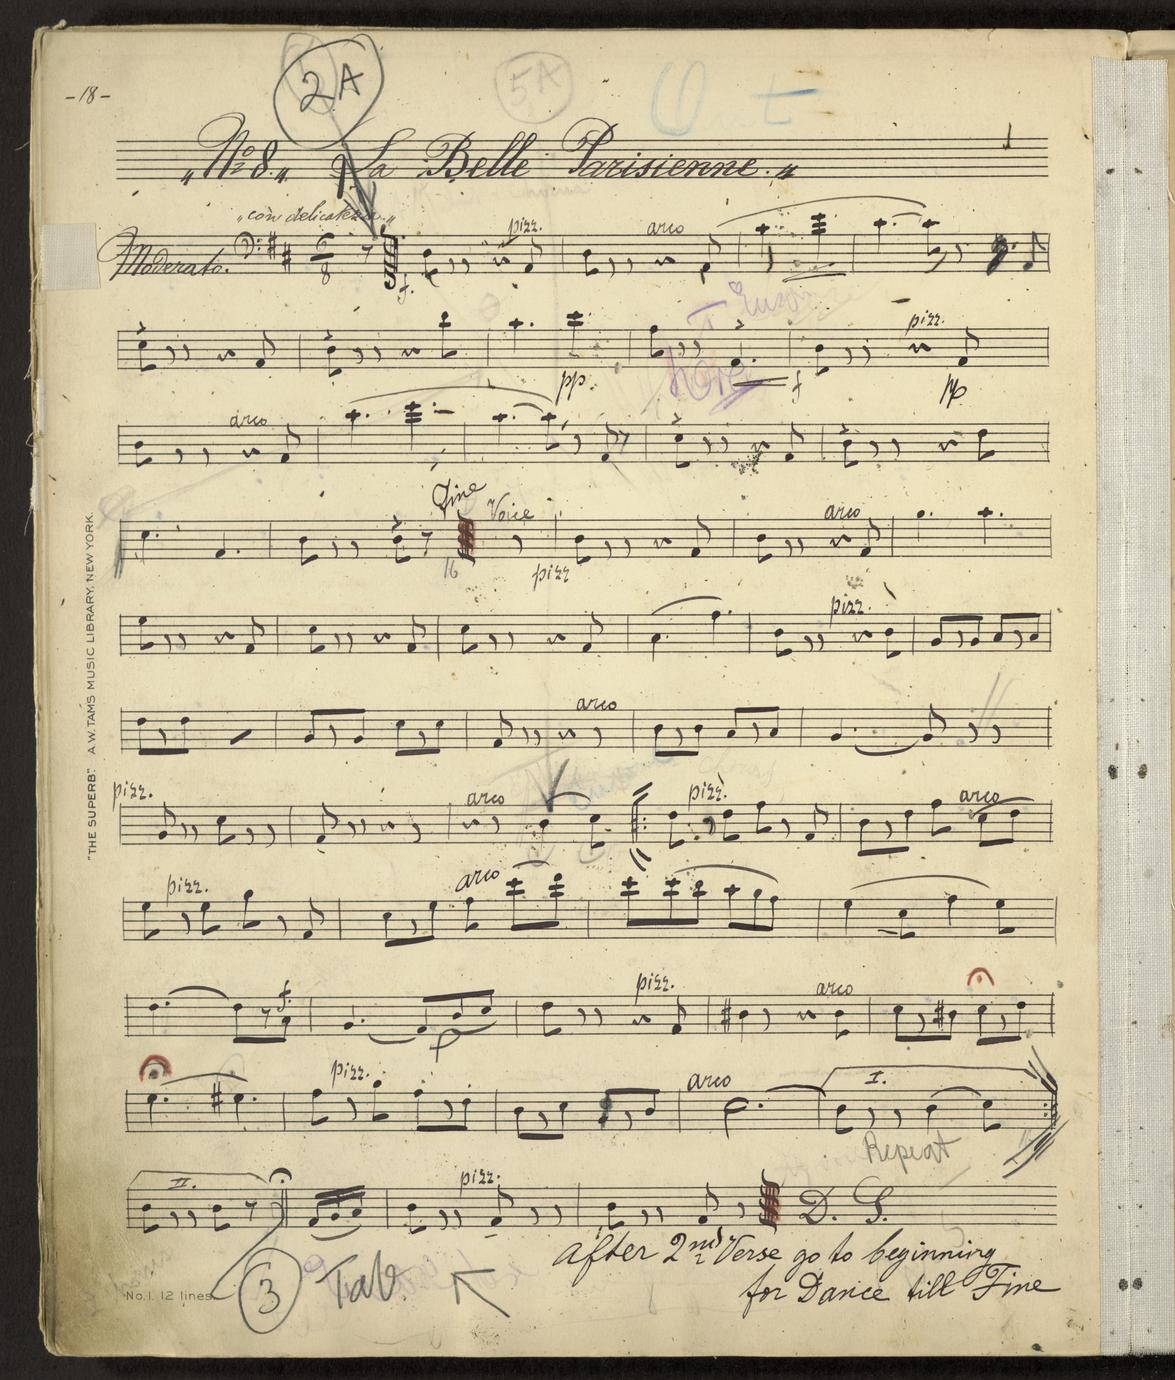 -18-
2A
5A
„No 8„ La Belle Parisienne.„
„con delicatezza„
Moderato.
6
8
pizz. arco
f.
pizz.
pp. f pp
arco
Fine
Voice arco
16 pizz
pizz.
arco
pizz. arco pizz. arco
pizz. arco
f. pizz. arco
p
pizz. arco I.
Repeat
II. pizz. D. S.
after 2nd Verse go to beginning
for Dance till Fine
3 Tab.
No. 1. 12 lines.
"THE SUPERB." A.W. TAMS MUSIC LIBRARY, NEW YORK.